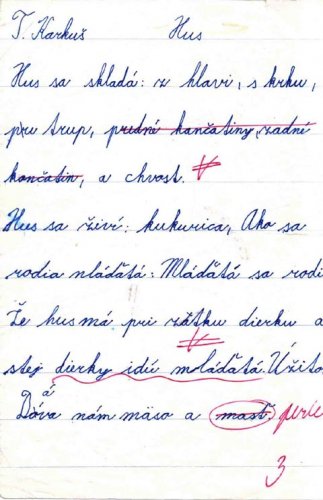 T. Karkuš Hus
Hus sa skladá: z hlavi, s krku,
pri trup, predné končatiny, zadné
končatin, a chvost. V
Hus sa živí: kukurica, Ako sa
rodia mláďatá: Mláďatá sa rodi
Že hus má pri zatku dierku a
stej dierky idú moláďatá. Úžito
Dává nám mäso a masť. perie
3